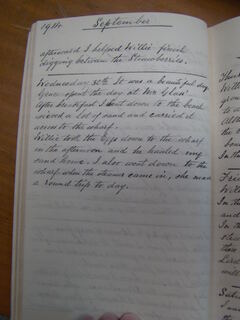 1914 September
afterward I helped Willie finish
digging between the Strawberries.
Wednesday 30th It was a beautiful day.
Grace spent the day at Mr
After breakfast I went down to the beach
sieved a lot of sand and carried it
across to the wharf.
Willie took the Egg down to the wharf
in the afternoon and he hauled my
sand home. I also went down to the
wharf when the steamer came in, she made
a round trip to day.
Thu
Fri